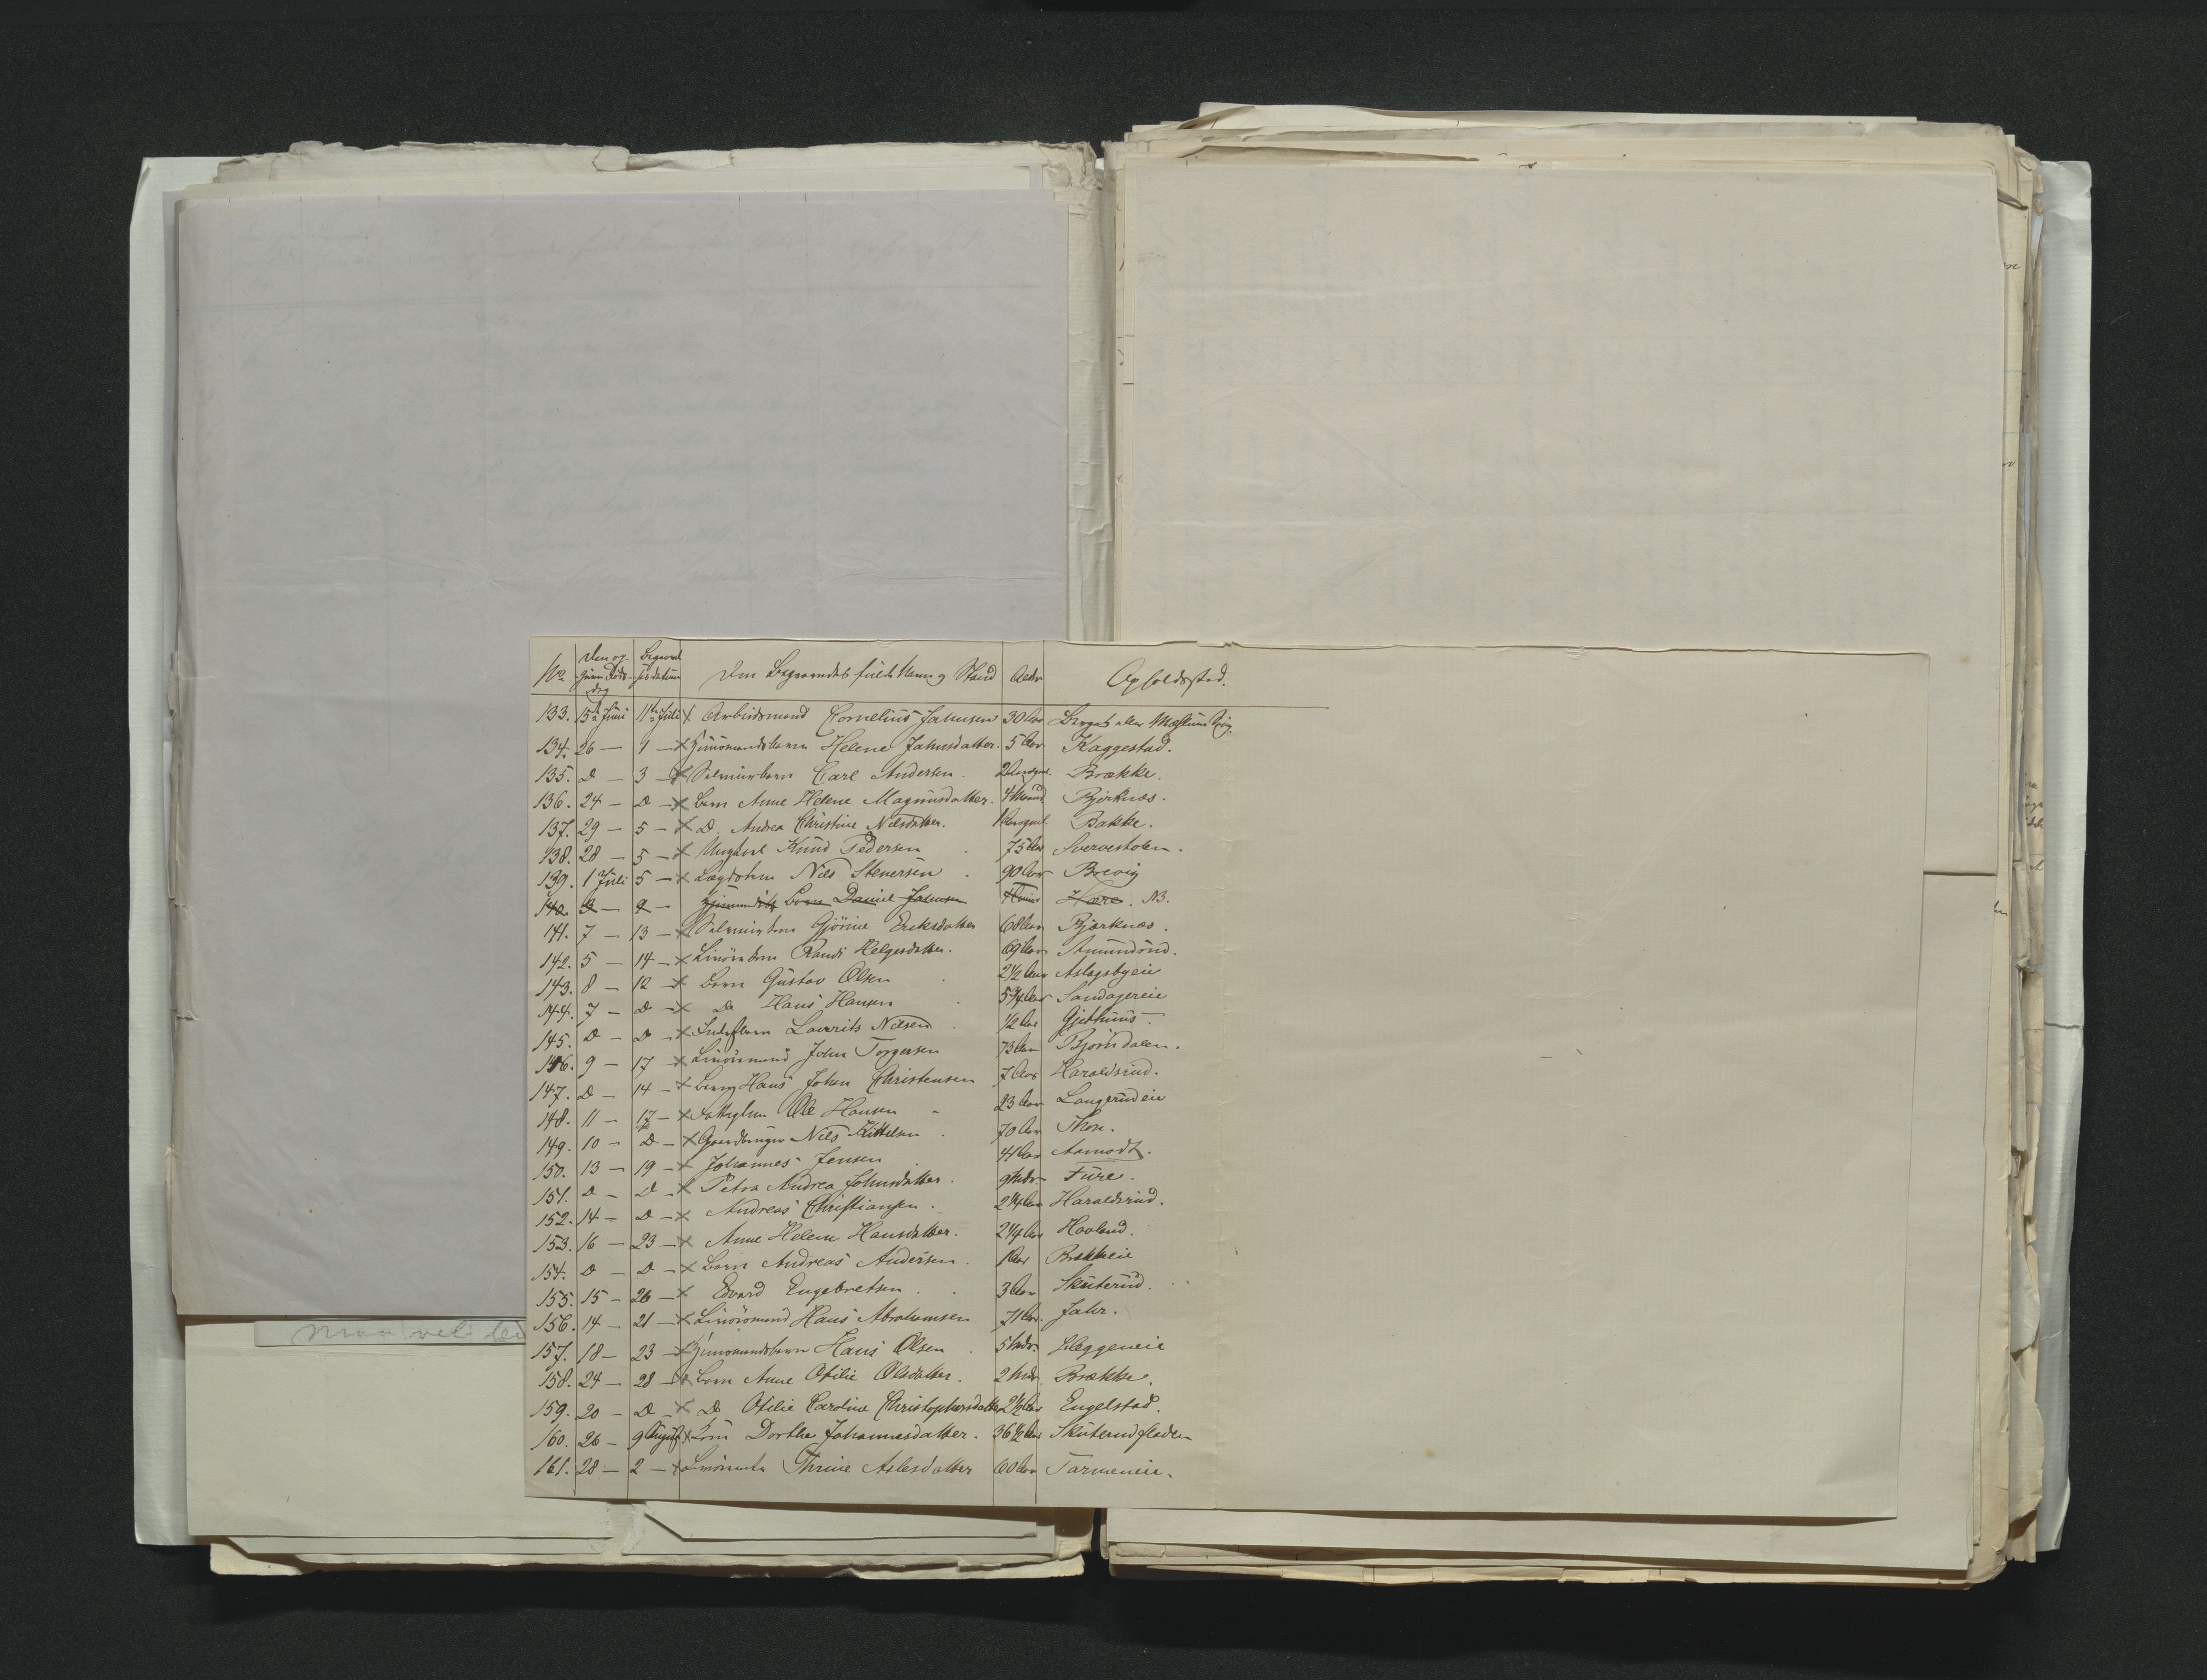 No Den op- givne Døds- dag Begravel- sesdatum Den Begravedes fulde Navn og Stand Alder Opholdssted.
133. 15de Juni 11te Juli x Arbeidsmand Cornelius Johnsen 30 Aar
134. 26 — 1 — x Huusmandsbarn Helene Johnsdatter. 5 Aar Kaggestad.
135. D — 3 — x Barn Carl Andersen. Brække.
136. 24 — D — x Barn Anne Helene Magnusdatter. 4 Maand Bjerknæs.
137. 29 — 5 — x D. Andrea Christine Nilsdatter. Bakke.
138. 28 — 5 — x Ungkarl Knud Pedersen 75 Aar Svervestolen.
139. 1 Juli 5 — x Lægdslem Nils Stenersen. 90 Aar Brevig
140. 3 — 9 — Barn Daniel Johnsen Høre. NB.
141. 7 — 13 — x Gjørine Eriksdatter 68 Aar Bjærknæs.
142. 5 — 14 — x Randi Helgesdatter. 69 Aar Amundrud.
143. 8 — 12 — x Barn Gustav Olsen 2 1/2 Aar Aslagsbyeie
144. 7 — D — x Do Hans Hansen 5 3/4 Aar Sandagereie
145. D — D — x Laurits Nilsen 1/2 Aar Gjethuus.
146. 9 — 17 — x John Torgersen 73 Aar Bjørndalen.
147. D — 14 — x Hans Johan Christensen 7 Aar Haraldsrud.
148. 11 — 17 — x Ole Hansen 23 Aar Langerudeie
149. 10 — D — x Gaardbruger Nils Kittelsen. 70 Aar
150. 13 — 19 — x Johannes Jensen 41 Aar Aamodt.
151. D — D — x Petra Andrea Johnsdatter. 9 Mdr. Fure.
152. 14 — D — x Andreas Christiansen. 2 1/4 Aar Haraldsrud.
153. 16 — 23 — x Anne Helene Hansdatter. 2 1/4 Aar Hovland.
154. D — D — x Barn Andreas Andersen. 1 Aar Brækkeie
155. 15 — 26 — x Edvard Engebretsen. 3 Aar Skuterud.
156. 14 — 21 — x Hans Abrahamsen 71 Aar. Jahr.
157. 18 — 23 — x Huusmandsbarn Hans Olsen. 5 Mdr. Heggeneie
158. 24 — 28 — x Barn Anne Otilie Olsdatter. 2 Mdr. Brække.
159. 20 — D — x Do Otilie Caroline Christophersdatter 2 1/2 Aar Engelstad.
160. 26 — 9 August x Dorthe Johannesdatter. 36 1/2 Aar Skuterudfladen
161. 28 — 2 — x Thrine Aslesdatter 60 Aar